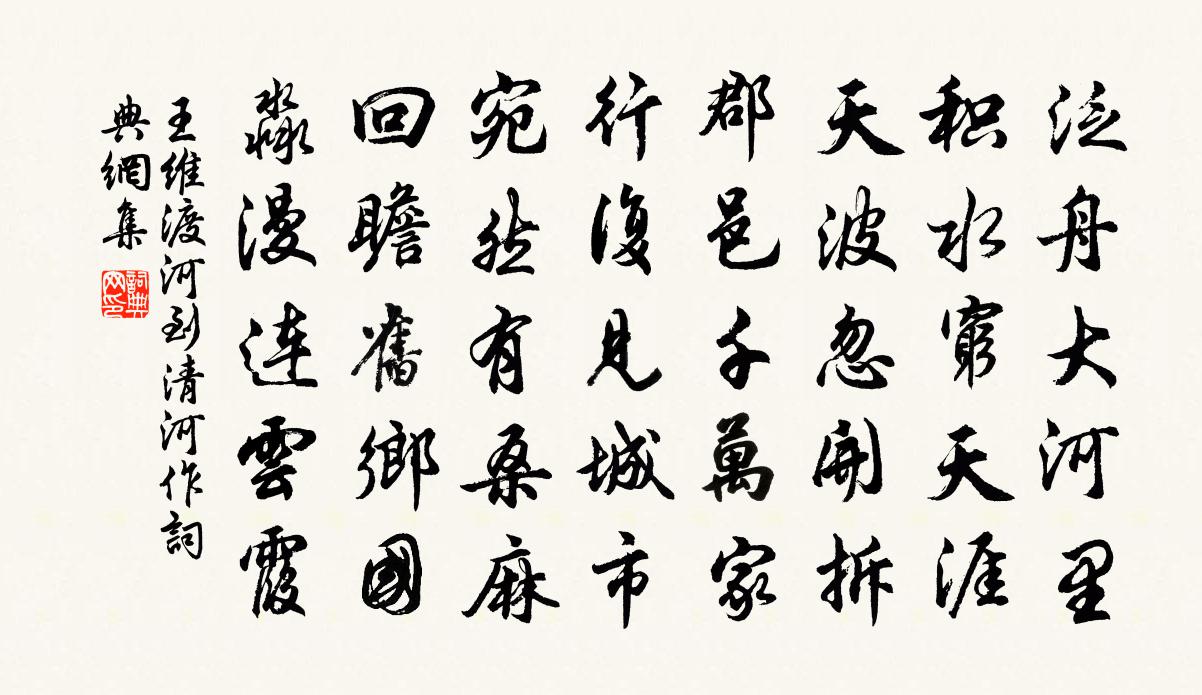 泛舟大河里
积水窮天涯
天波忽開拆
郡邑千萬家
行復見城市
宛然有桑麻
回瞻舊鄉國
淼漫連雲霞
王維渡河到清河作詞
典網集
詞典
网印